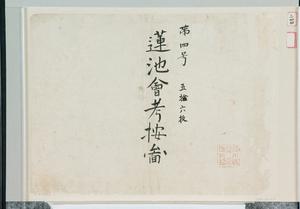 第四号
五拾六枚
蓮池會考按圖